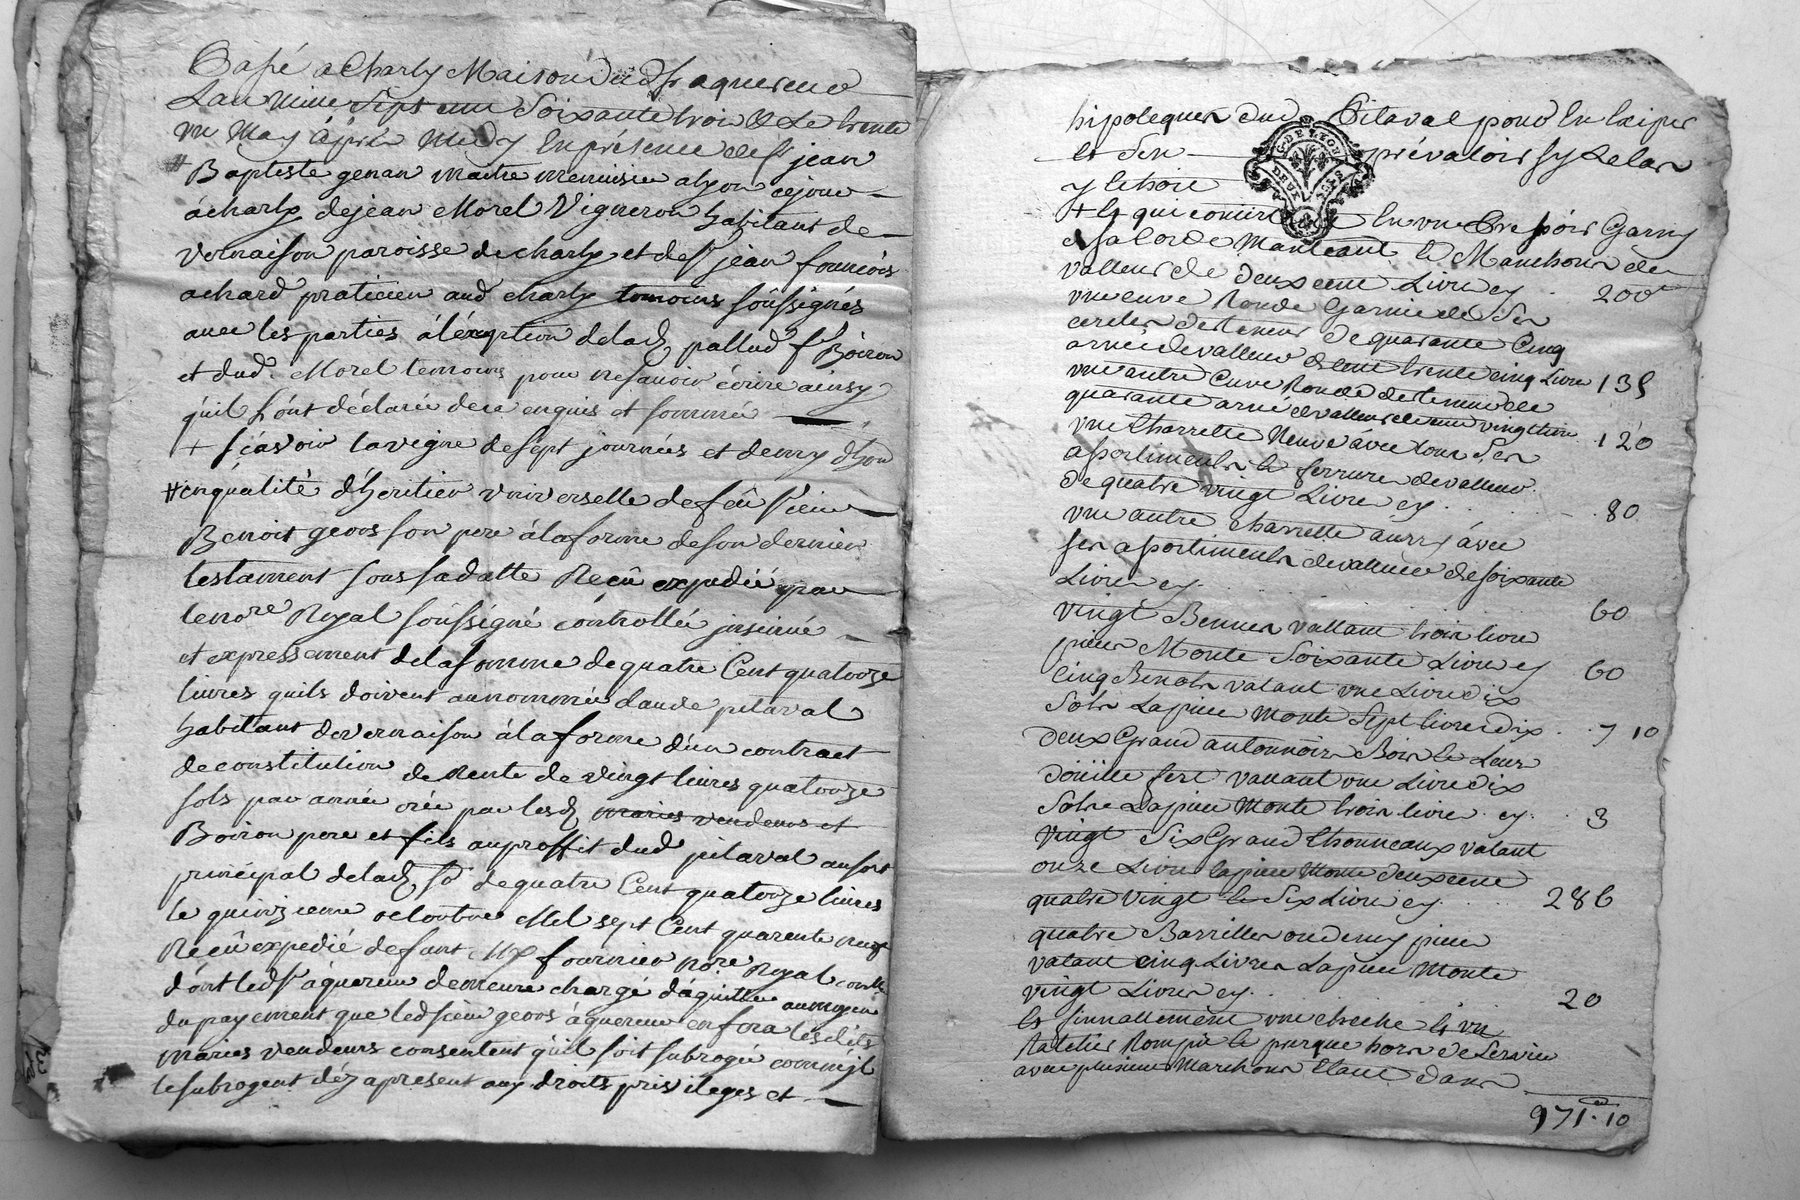 passé a Charly Maison dud Sr aquereur
Lan mille sept cent soixante trois & le trente
un May après Midy En présence de Sr jean
# Baptiste genan maitre menuisier a lyon ce jour
à charly de jean Morel Vigneron habitant de
vernaison paroisse de charly et de Sr jean francois
achard praticien aud charly temoins soussignés
avec les parties à léxception de lad pallud Sr Boiron
et dud. Morel temoins pour ne savoir écrire ainsy
quil sont déclarée de ce enquis et sommée
+ scavoir la vigne de sept journées et demy
# en qualité d'heritier universelle de feû sieur
Benoit geoos son pere à la forme de son dernier
testament sous sa datte Reçû expedié par
le nore Royal soussigné controllée insinué
et expressement de la somme de quatre Cent quatorze
livres quils doivent au nommée Claude pitaval
habitant de vernaison à la forme d'un contract
de constitution de Rente de vingt livres quatorze
sols par année crée par lesd maries vendeurs et
Boiron pere et fils au proffit dud pitaval au sort
principal de lad so de quatre Cent quatorze livres
le quinzieme octobre Mil sept Cent quarente neuf
Reçû expedié defunt Me fournier nore Royal
dont led Sr àquereur demeure chargé d'àquitter au moyen
du payement que led sieur geoos àquereur en fera lesdits
maries vendeurs consentent quil soit subrogé comme jl
le subrogent déz apresent aux droits privileges et
hipoteques dud Pitaval pour En Exiper
et sen prévaloir sy le cas
y Echoit
+ Et qui consiste En un Pressoir Garny
de sa Corde Manteaux & Manchons de
valleur de deux cent Livres cy . 200
une cuve Ronde Garnie de Ses
cercles de teneur de quarante Cinq
anée de valleur de Cent trente cinq Livres 135
une autre Cuve Ronde de teneur de
quarante anné de valleur de cent vingt Livres . 120
une Charrette Neuve avec tous Ses
assortiments & ferrures de valleur
de quatre vingt Livres cy . 80
une autre charrette aussy avec
ses assortiments de valleur de soixante
Livres cy. 60
vingt Bennes vallant trois livre
piece Monte Soixante Livres cy 60
Cinq Benots valant une Livre dix
Sols La piece Monte Sept livres dix . . 7 10
deux Grand antonnoirs Bois & Leur
doüille fert vallant une Livre dix
Sols La piece Monte trois livres . cy. 3
vingt Six Grand thonneaux valant
onze Livres la piece Monte deux cent
quatre vingt & Six Livres cy. 286
quatre Barrilles ou demy piece
valant cinq Livres La piece Monte
vingt Livres cy. 20
Et finnallement une creche & un
Ratelier Rompu & presque hors de Service
avec plusieurs Marchons Etant dans
971 . 10
G. DE LYON
DEUX SOLS